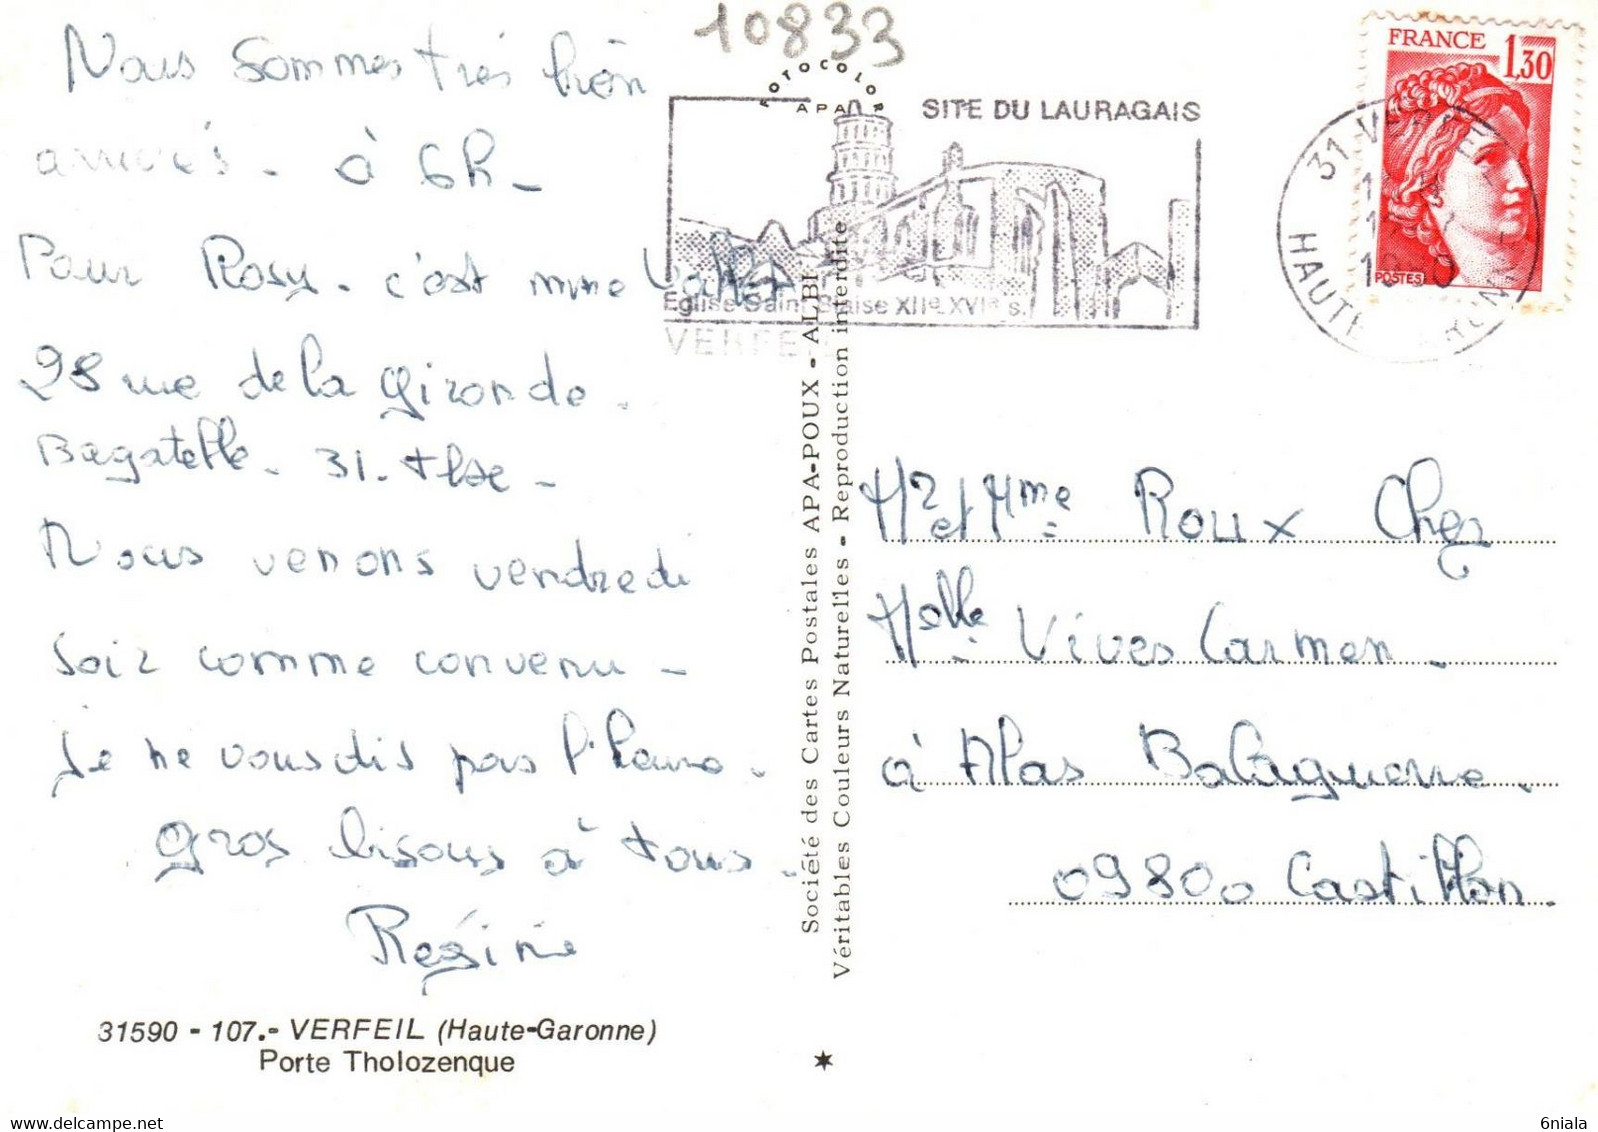 10833
Nous sommes très bien
arrivés - à 6h -
Pour Rosy - c'est mme
28 rue de la Gironde.
Bagatelle - 31. Tlse -
Nous venons vendredi
soir comme convenu -
Je ne vous dis pas l'heure.
Gros bisous à tous.
Régine
31590 - 107.- VERFEIL (Haute-Garonne)
Porte Tholozenque
FOTOCOLOR
APA
SITE DU LAURAGAIS
Eglise Saint Blaise XIIe XVIe s.
VERFEIL
Société des Cartes Postales APA-POUX - ALBI
Véritables Couleurs Naturelles - Reproduction interdite
FRANCE 1,30
POSTES
31 VERFEIL
HAUTE GARONNE
Mr et Mme Roux Chez
Melle Vives Carmen -
à Alas Balaguerre.
09800 Castillon.
6niala